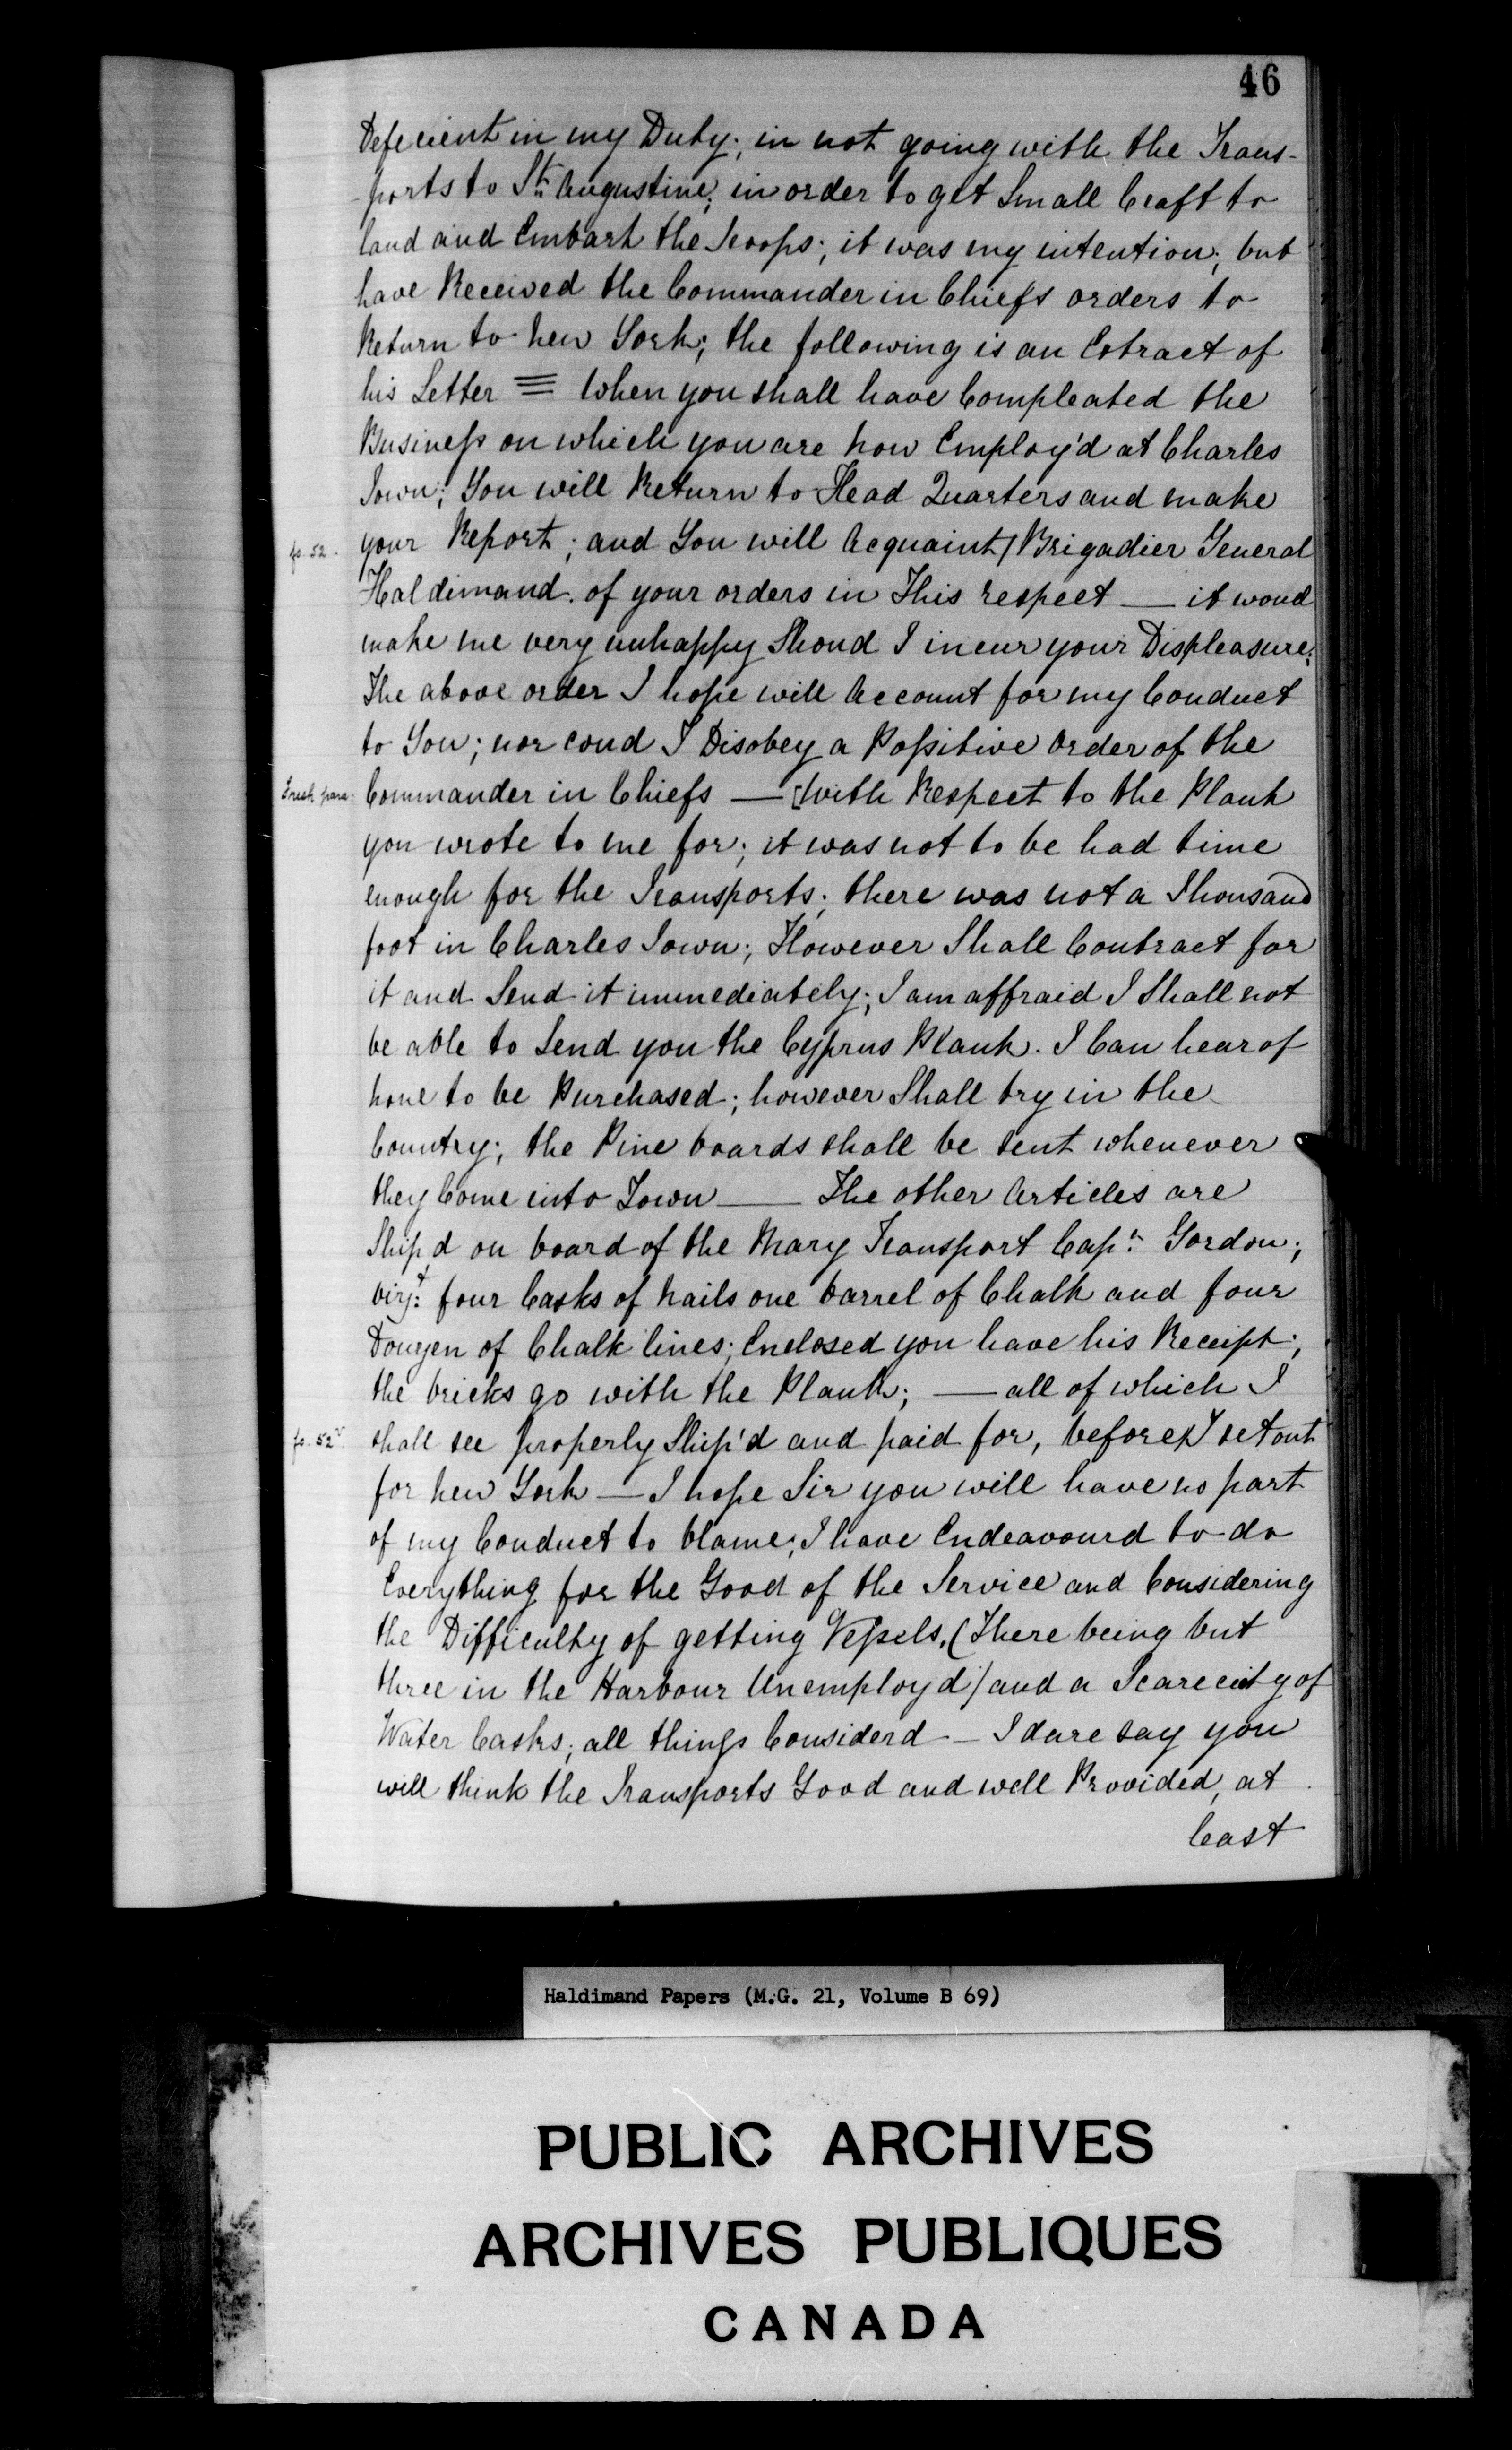 46
Defecient in my Duty; in not going with the Trans-
-ports to St. Augustine; in order to get Small Craft to
land and Embark the Troops; it was my intention; but
have Received the Commander in Chiefs orders to
Return to new York; the following is an Extract of
his Letter = When you shall have Compleated the
Business on which you are now Employ'd at Charles
Town; You will Return to Head Quarters and make
fo. 52. your Report; and You will Acquaint / Brigadier General
Haldimand. of your orders in This respect — it woud
make me very unhappy Shoud I incur your Displeasure;
The above order I hope will Account for my Conduct
to You; nor coud I Disobey a Possitive Order of the
Fresh para: Commander in Chiefs — [With Respect to the Plank
you wrote to me for; it was not to be had time
enough for the Transports; there was not a Thousand
foot in Charles Town; However Shall Contract for
it and Send it immediately; I am affraid I Shall not
be able to Send you the Cyprus Plank. I Can hear of
none to be Purchased; however Shall try in the
Country; the Pine boards shall be sent whenever
they Come into Town — The other Articles are
Ship'd on board of the Mary Transport Capn. Gordon;
vizt: four Casks of nails one barrel of Chalk and four
Douzen of Chalk lines; Enclosed you have his Receipt;
the bricks go with the Plank; — all of which I
fo. 52v. shall see properly Ship'd and paid for, before / I set out
for new York — I hope Sir you will have no part
of my Conduct to blame; I have Endeavourd to do
Everything for the Good of the Service and Considering
the Difficulty of getting Vessels, (There being but
three in the Harbour Unemployd) and a Scarecity of
Water Casks; all things Considerd — I dare say you
will think the Transports Good and well Provided, at
least
Haldimand Papers (M.G. 21, Volume B 69)
PUBLIC ARCHIVES
ARCHIVES PUBLIQUES
CANADA